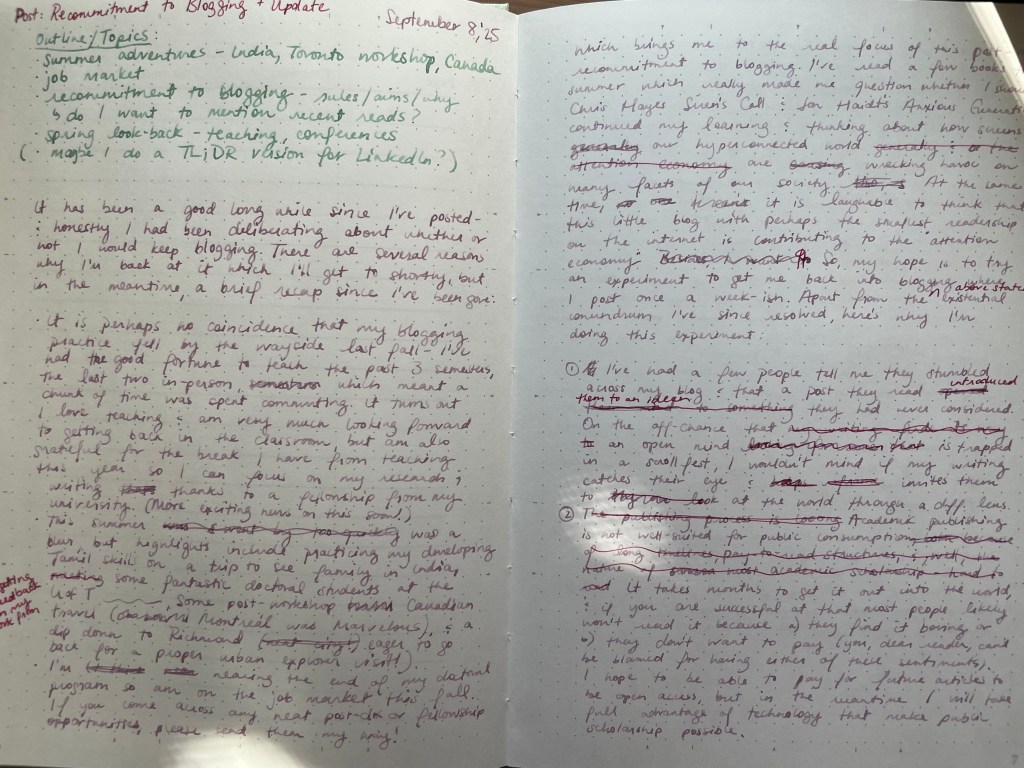 Post: Recommitment to Blogging + Update
September 8, '25
Outline/Topics:
Summer adventures - India, Toronto workshop, Canada
job market
recommitment to blogging - rules/aims/why
↳ do I want to mention recent reads?
spring look-back - teaching, conferences
( maybe I do a TL;DR version for LinkedIn?)
It has been a good long while since I've posted -
: honestly I had been deliberating about whether or
not I would keep blogging. There are several reason
why I'm back at it which I'll get to shortly, but
in the meantime, a brief recap since I've been gone:
It is perhaps no coincidence that my blogging
practice fell by the wayside last fall - I've
had the good fortune to teach the past 3 semesters,
the last two in-person, semesters which meant a
chunk of time was spent commuting. It turns out
I love teaching & am very much looking forward
to getting back in the classroom, but am also
grateful for the break I have from teaching
this year so I can focus on my research &
writing thanks to a fellowship from my
university. (More exciting news on this soon!)
This summer was a
blur, but highlights include practicing my developing
Tamil skill on a trip to see family in India,
meeting some fantastic doctoral students at the
U of T Some post-workshop Canadian
travel (Montreal was marvelous), & a
dip down to Richmond (eager to go
back for a proper urban explorer visit!)
I'm nearing the end of my doctoral
program so am on the job market this fall.
If you come across any neat post-doc or fellowship
opportunities, please send them my way!
which brings me to the real focus of this post -
recommitment to blogging. I've read a few books
summer which really made me question whether I
Chris Hayes Siren's Call & Jon Haidt's Anxious
continued my learning & thinking about how screens
generally our hyperconnected world
attention economy are causing wreaking havoc on
many facets of our society. At the same
time, it is laughable to think that
this little blog with perhaps the smallest readership
on the internet is contributing to the attention
economy. So, my hope is to try
an experiment to get me back into blogging where
I post once a week-ish. Apart from the above stated existential
conundrum I've since resolved, here's why I'm
doing this experiment:
① I've had a few people tell me they stumbled
across my blog & that a post they read introduced
them to an idea they had never considered.
On the off-chance that
an open mind is trapped
in a scroll fest, I wouldn't mind if my writing
catches their eye & invites them
to look at the world through a diff. lens.
② The publishing process is Academic publishing
is not well-suited for public consumption
It takes months to get it out into the world,
& if you are successful at that most people likely
won't read it because a) they find it boring or
b) they don't want to pay (you, dear reader, can't
be blamed for having either of these sentiments).
I hope to be able to pay for future articles to
be open access, but in the meantime I will take
full advantage of technology that make public
scholarship possible.
7